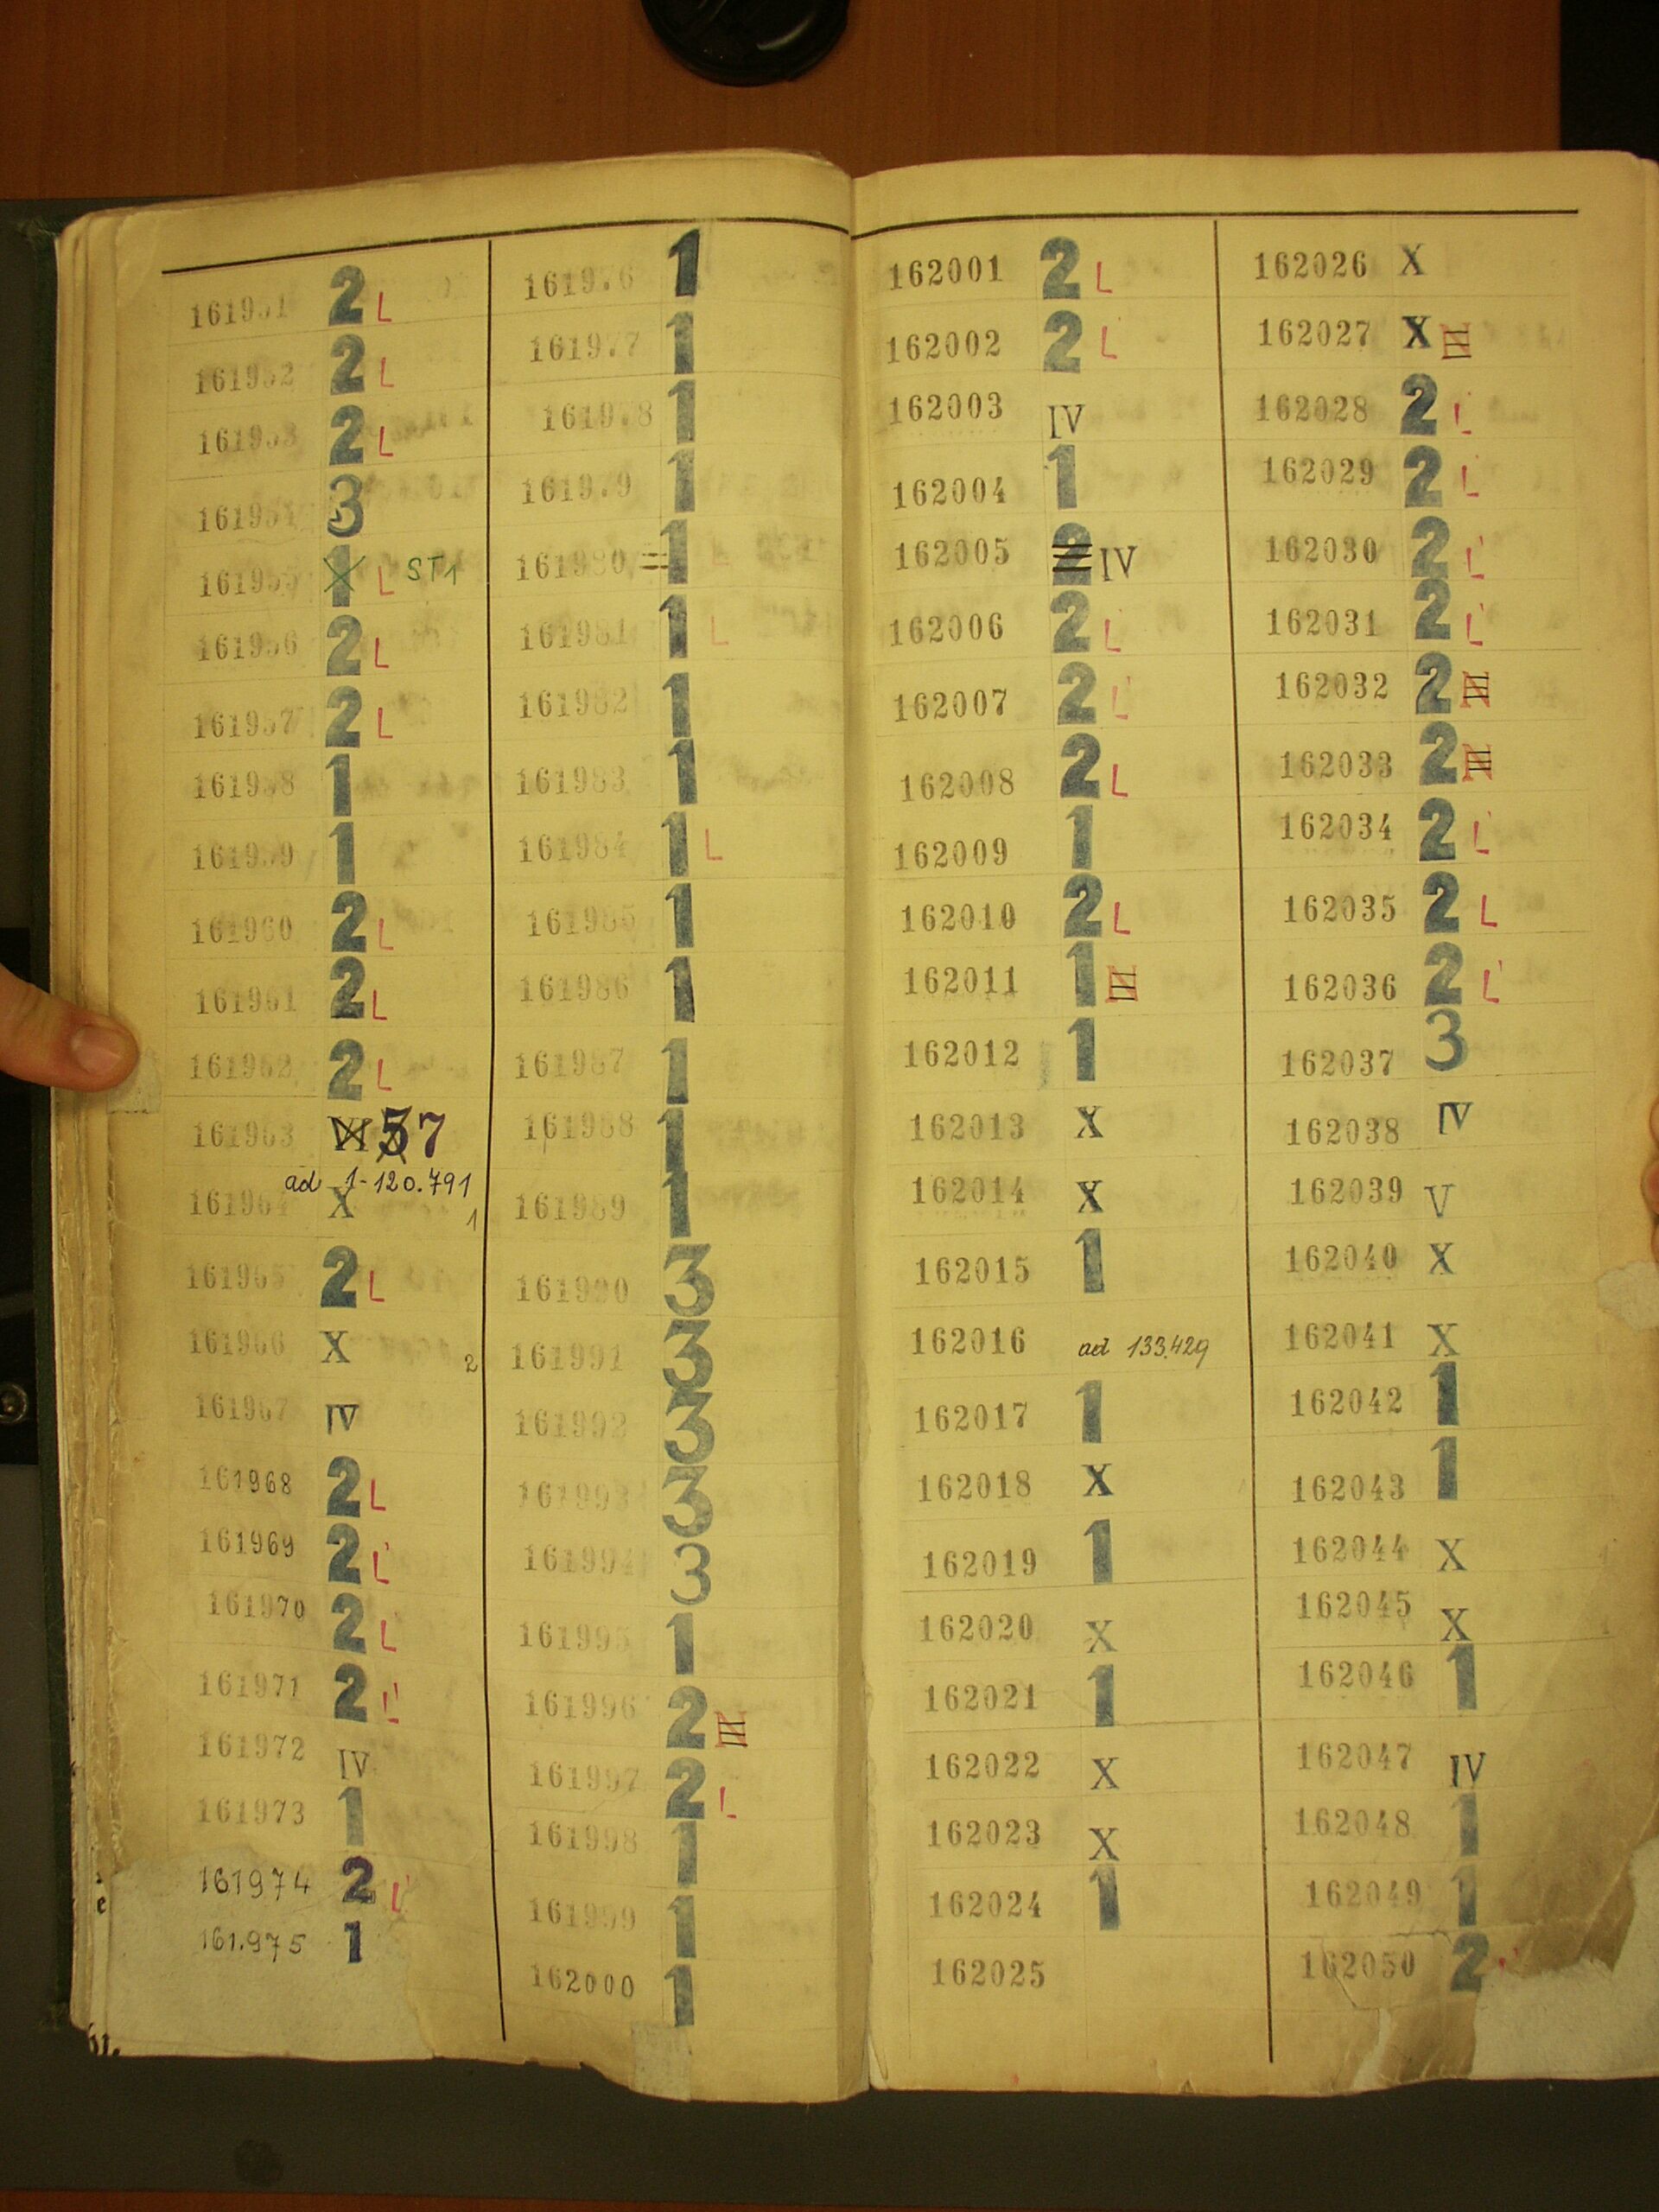 161951 2 L
161952 2 L
161953 2 L
161954 3
161955 1 L ST1
161956 2 L
161957 2 L
161958 1
161959 1
161960 2 L
161961 2 L
161962 2 L
161963 VI 5 7
ad 1-120.791
161964 X 1
161965 2 L
161966 X 2
161967 IV
161968 2 L
161969 2 L
161970 2 L
161971 2 L
161972 IV
161973 1
161974 2 L
161.975 1
161976 1
161977 1
161978 1
161979 1
161980 1
161981 1 L
161982 1
161983 1
161984 1 L
161985 1
161986 1
161987 1
161988 1
161989 1
161990 3
161991 3
161992 3
161993 3
161994 3
161995 1
161996 2 N
161997 2 L
161998 1
161999 1
162000 1
162001 2 L
162002 2 L
162003 IV
162004 1
162005 2 IV
162006 2 L
162007 2 L
162008 2 L
162009 1
162010 2 L
162011 1 N
162012 1
162013 X
162014 X
162015 1
162016 ad 133.429
162017 1
162018 X
162019 1
162020 X
162021 1
162022 X
162023 X
162024 1
162025
162026 X
162027 X N
162028 2 L
162029 2 L
162030 2 L
162031 2 L
162032 2 N
162033 2 N
162034 2 L
162035 2 L
162036 2 L
162037 3
162038 IV
162039 V
162040 X
162041 X
162042 1
162043 1
162044 X
162045 X
162046 1
162047 IV
162048 1
162049 1
162050 2